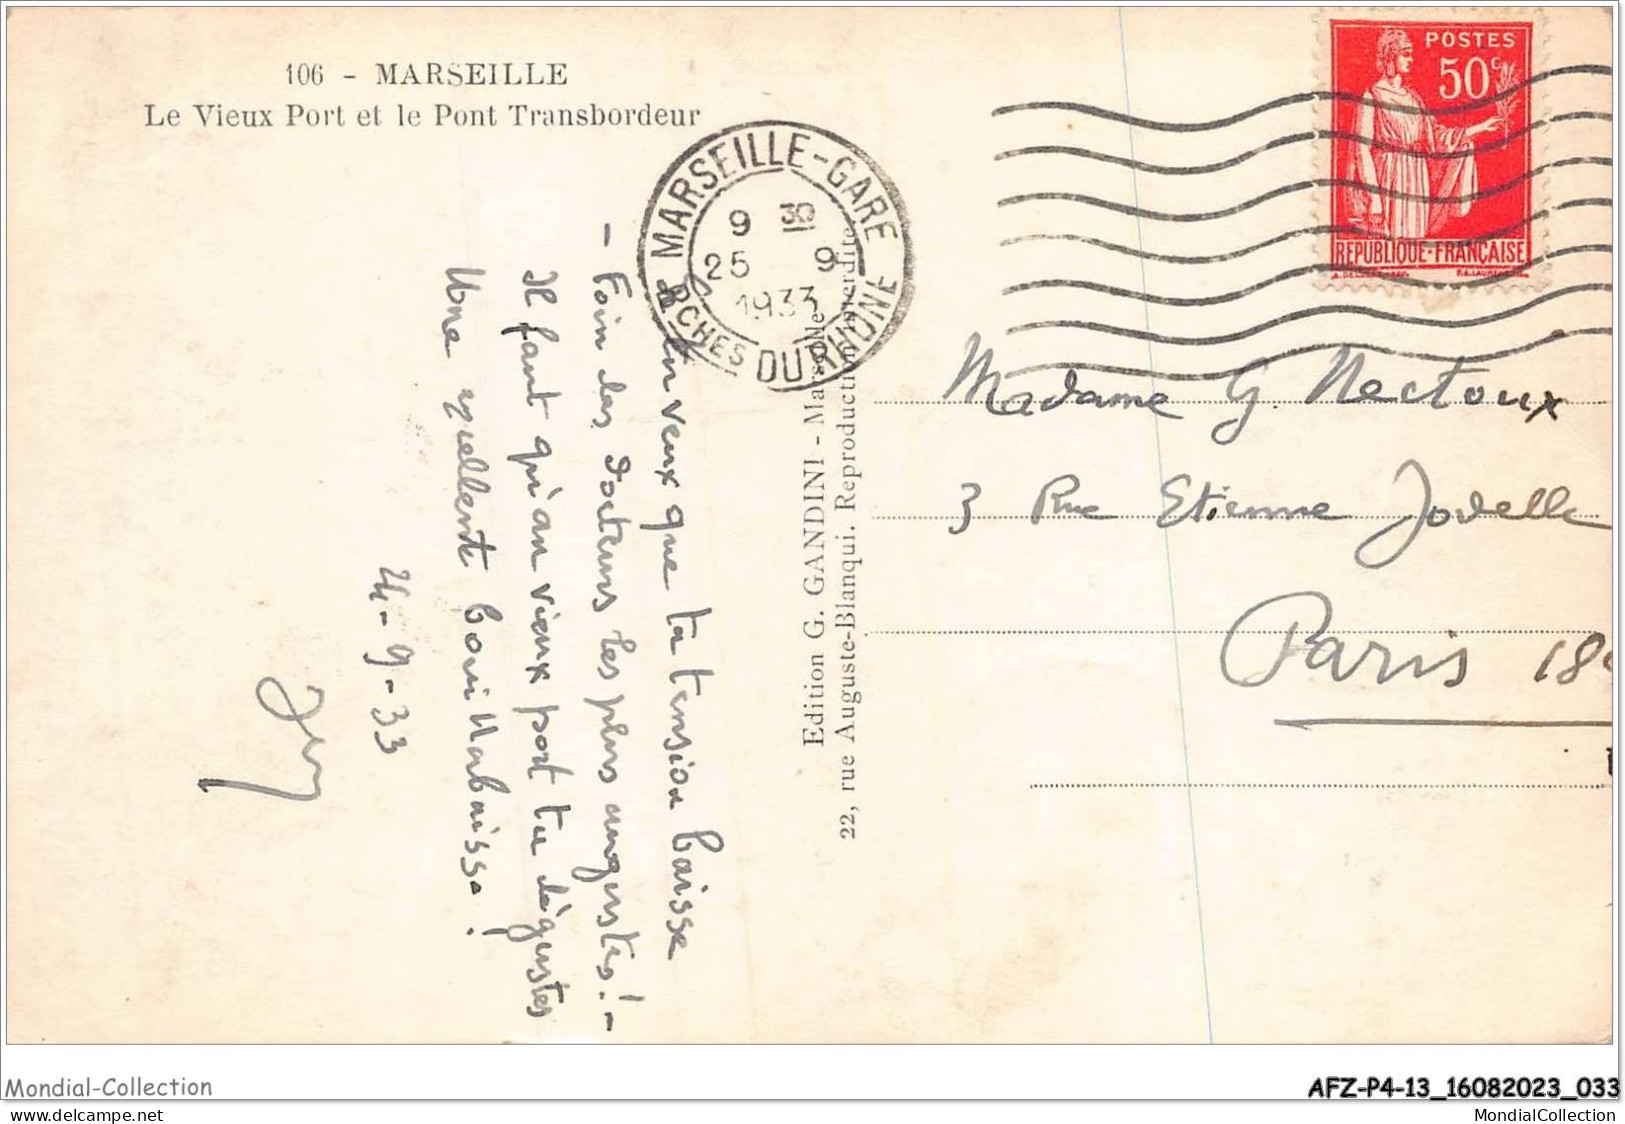 106 - MARSEILLE
Le Vieux Port et le Pont Transbordeur
MARSEILLE-GARE
9 30
25 9
1933
BCHES DU RHONE
POSTES
50c
REPUBLIQUE-FRANÇAISE
Si tu veux que ta tension baisse
- Foin des docteurs les plus augustes! -
Il faut qu'au vieux port tu dégustes
Une excellente bouillabaisse!
24-9-33
Edition G. GANDINI - Marseille
22, rue Auguste-Blanqui. Reproduction interdite
Madame G. Nectoux
3 Rue Etienne Jodelle
Paris 18e
Mondial-Collection
AFZ-P4-13_16082023_033
www.delcampe.net
MondialCollection